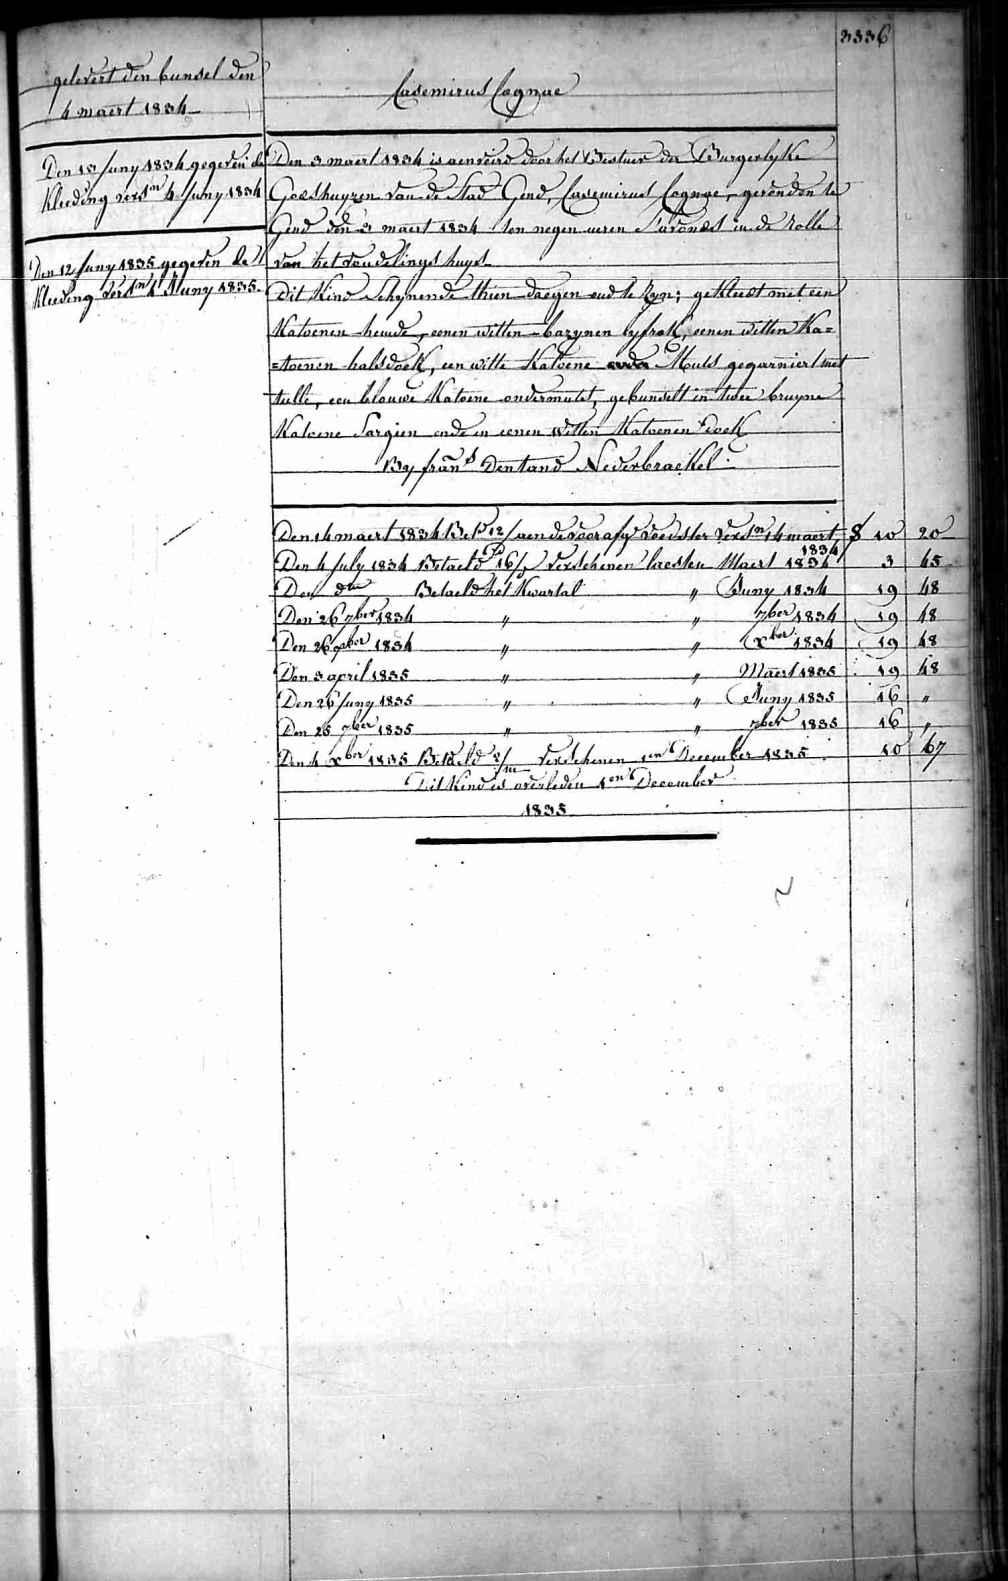 3336
gelevert den bunsel den
4 maert 1834
Den 13 Juny 1834 gegeven de
kleeding versn 4 Juny 1834
Den 12 Juny 1835 gegeven de
kleeding versn 4 Juny 1835.
Casemirus Cognae
Den 3 maert 1834 is aenveird door het Bestuer der Burgerlyke
Godshuyzen van de Stad Gend, Casemirus Cognae, gevonden te
Gend den 3 maert 1834 ten negen ueren s'avonds in de rolle
van het vondelings huys.
Dit Kind schynende thien daegen oud te zyn; gekleedt met een
Katoenen hemde, eenen witten bazynen lyfrok, eenen witten Ka=
=toenen halsdoek, een witte Katoene Muts gegarniert met
tulle, een blauwe Katoene ondermuts, gebunselt in twee bruyne
Katoene Sargien ende in eenen witten Katoenen doek
By frans Dentand Nederbraekel
Den 14 maert 1834 Betd 12/ aen de voorafg voedster versn 14 maert 1834 f 10 20
Den 4 July 1834 Betaeld 16/d verschenen laesten Maert 1834 3 45
Den dto Betaeld het Kwartal " Juny 1834 19 48
Den 26 7ber 1834 " " 7ber 1834 19 48
Den 26 xber 1834 " " xber 1834 19 48
Den 3 april 1835 " " Maert 1835 19 48
Den 26 Juny 1835 " " Juny 1835 16 "
Den 25 7ber 1835 " " 7ber 1835 16 "
Den 4 xber 1835 Betaeld 2/m verschenen 1en December 1835 10 67
Dit Kind is overleden 1en December
1835